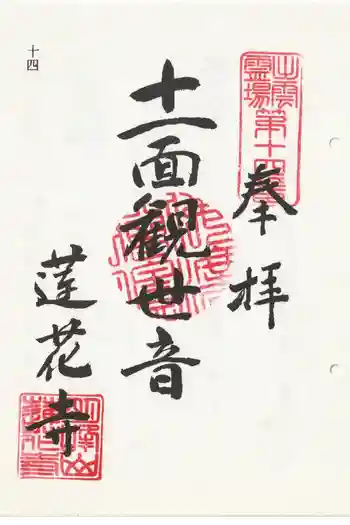 出雲
霊場
第十四番
奉拝
十一面觀世音
蓮花寺
十四